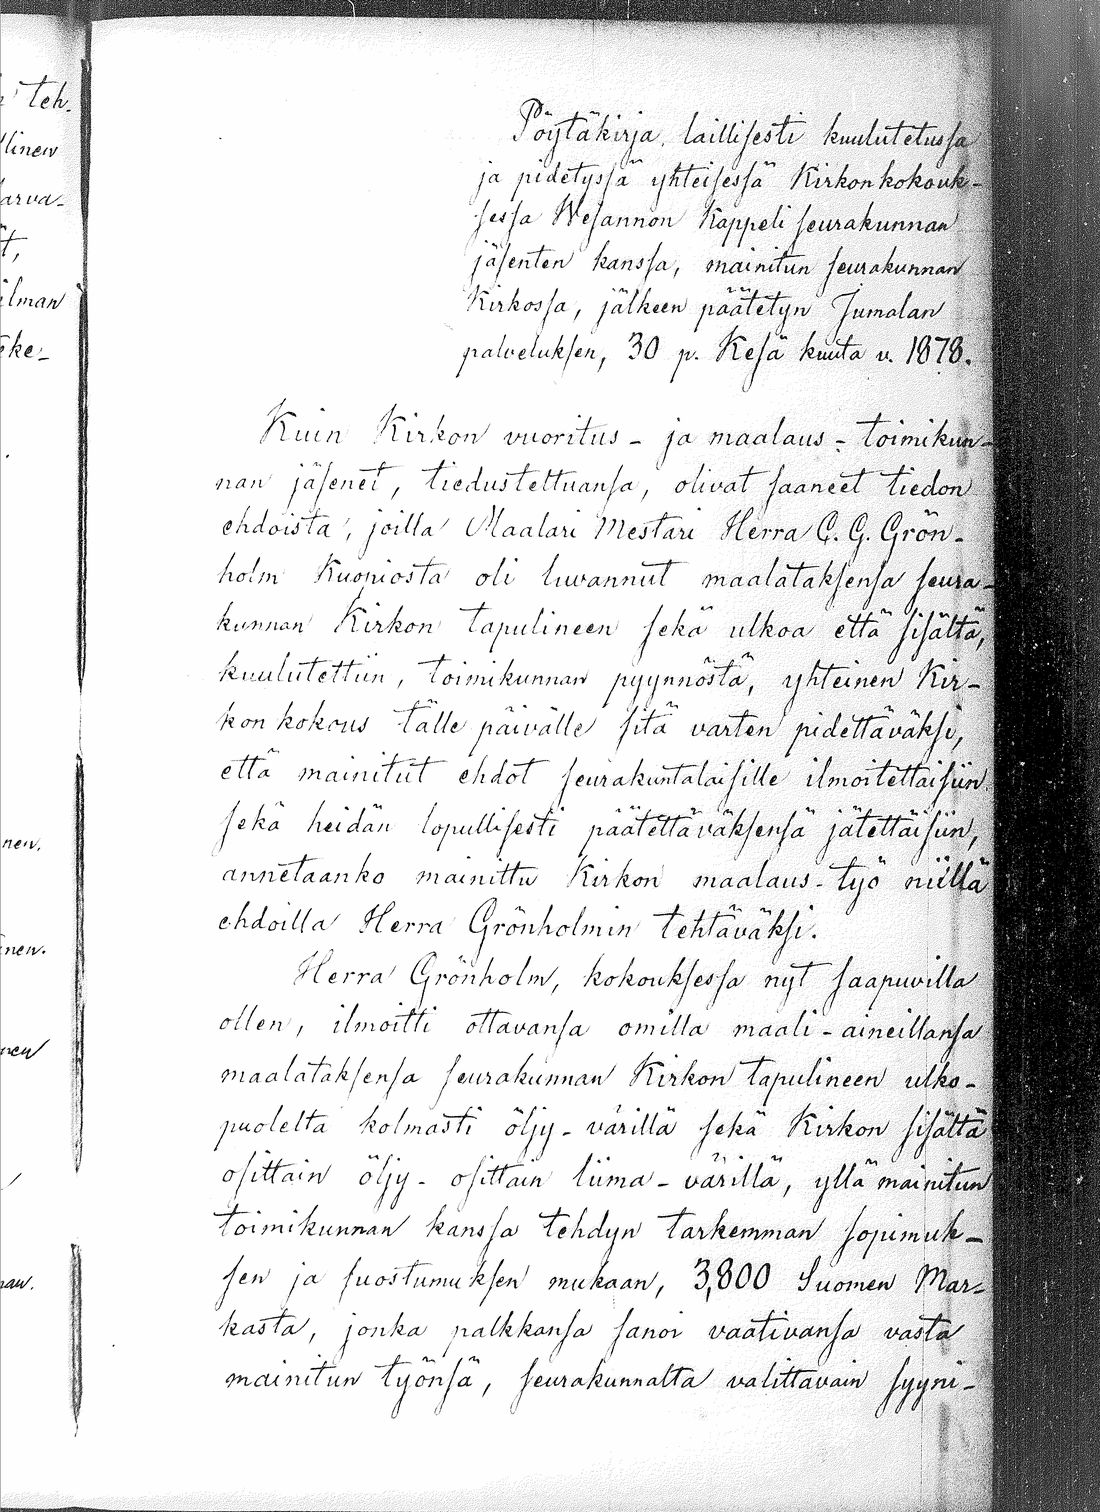 teh-
llinen
arva-
t,
ilman
eke-
nen.
inen.
nen
nan.
Pöytäkirja, laillisesti kuulutetussa
ja pidetyssä yhteisessä Kirkonkokouk-
sessa Wesannon Kappeli seurakunnan
jäsenten kanssa, mainitun seurakunnan
Kirkossa, jälkeen päätetyn Jumalan
palveluksen, 30 p. Kesä kuuta v. 1878.
Kuin Kirkon vuoritus- ja maalaus-toimikun-
nan jäsenet, tiedustettuansa, olivat saaneet tiedon
ehdoista, joilla Maalari Mestari Herra C. G. Grön-
holm Kuopiosta oli luvannut maalataksensa seura-
kunnan Kirkon tapulineen sekä ulkoa että sisältä,
kuulutettiin, toimikunnan pyynnöstä, yhteinen Kir-
kon kokous tälle päivälle sitä varten pidettäväksi,
että mainitut ehdot seurakuntalaisille ilmoitettaisiin
sekä heidän lopullisesti päätettäväksensä jätettäisiin,
annetaanko mainittu Kirkon maalaus-työ niillä
ehdoilla Herra Grönholmin tehtäväksi.
Herra Grönholm, kokouksessa nyt saapuvilla
ollen, ilmoitti ottavansa omilla maali-aineillansa
maalataksensa seurakunnan Kirkon tapulineen ulko-
puolelta kolmasti öljy-värillä sekä Kirkon sisältä
osittain öljy- osittain liima-värillä, yllä mainitun
toimikunnan kanssa tehdyn tarkemman sopimuk-
sen ja suostumuksen mukaan, 3,800 Suomen Mar-
kasta, jonka palkkansa sanoi vaativansa vasta
mainitun työnsä, seurakunnalta valittavain syyni-